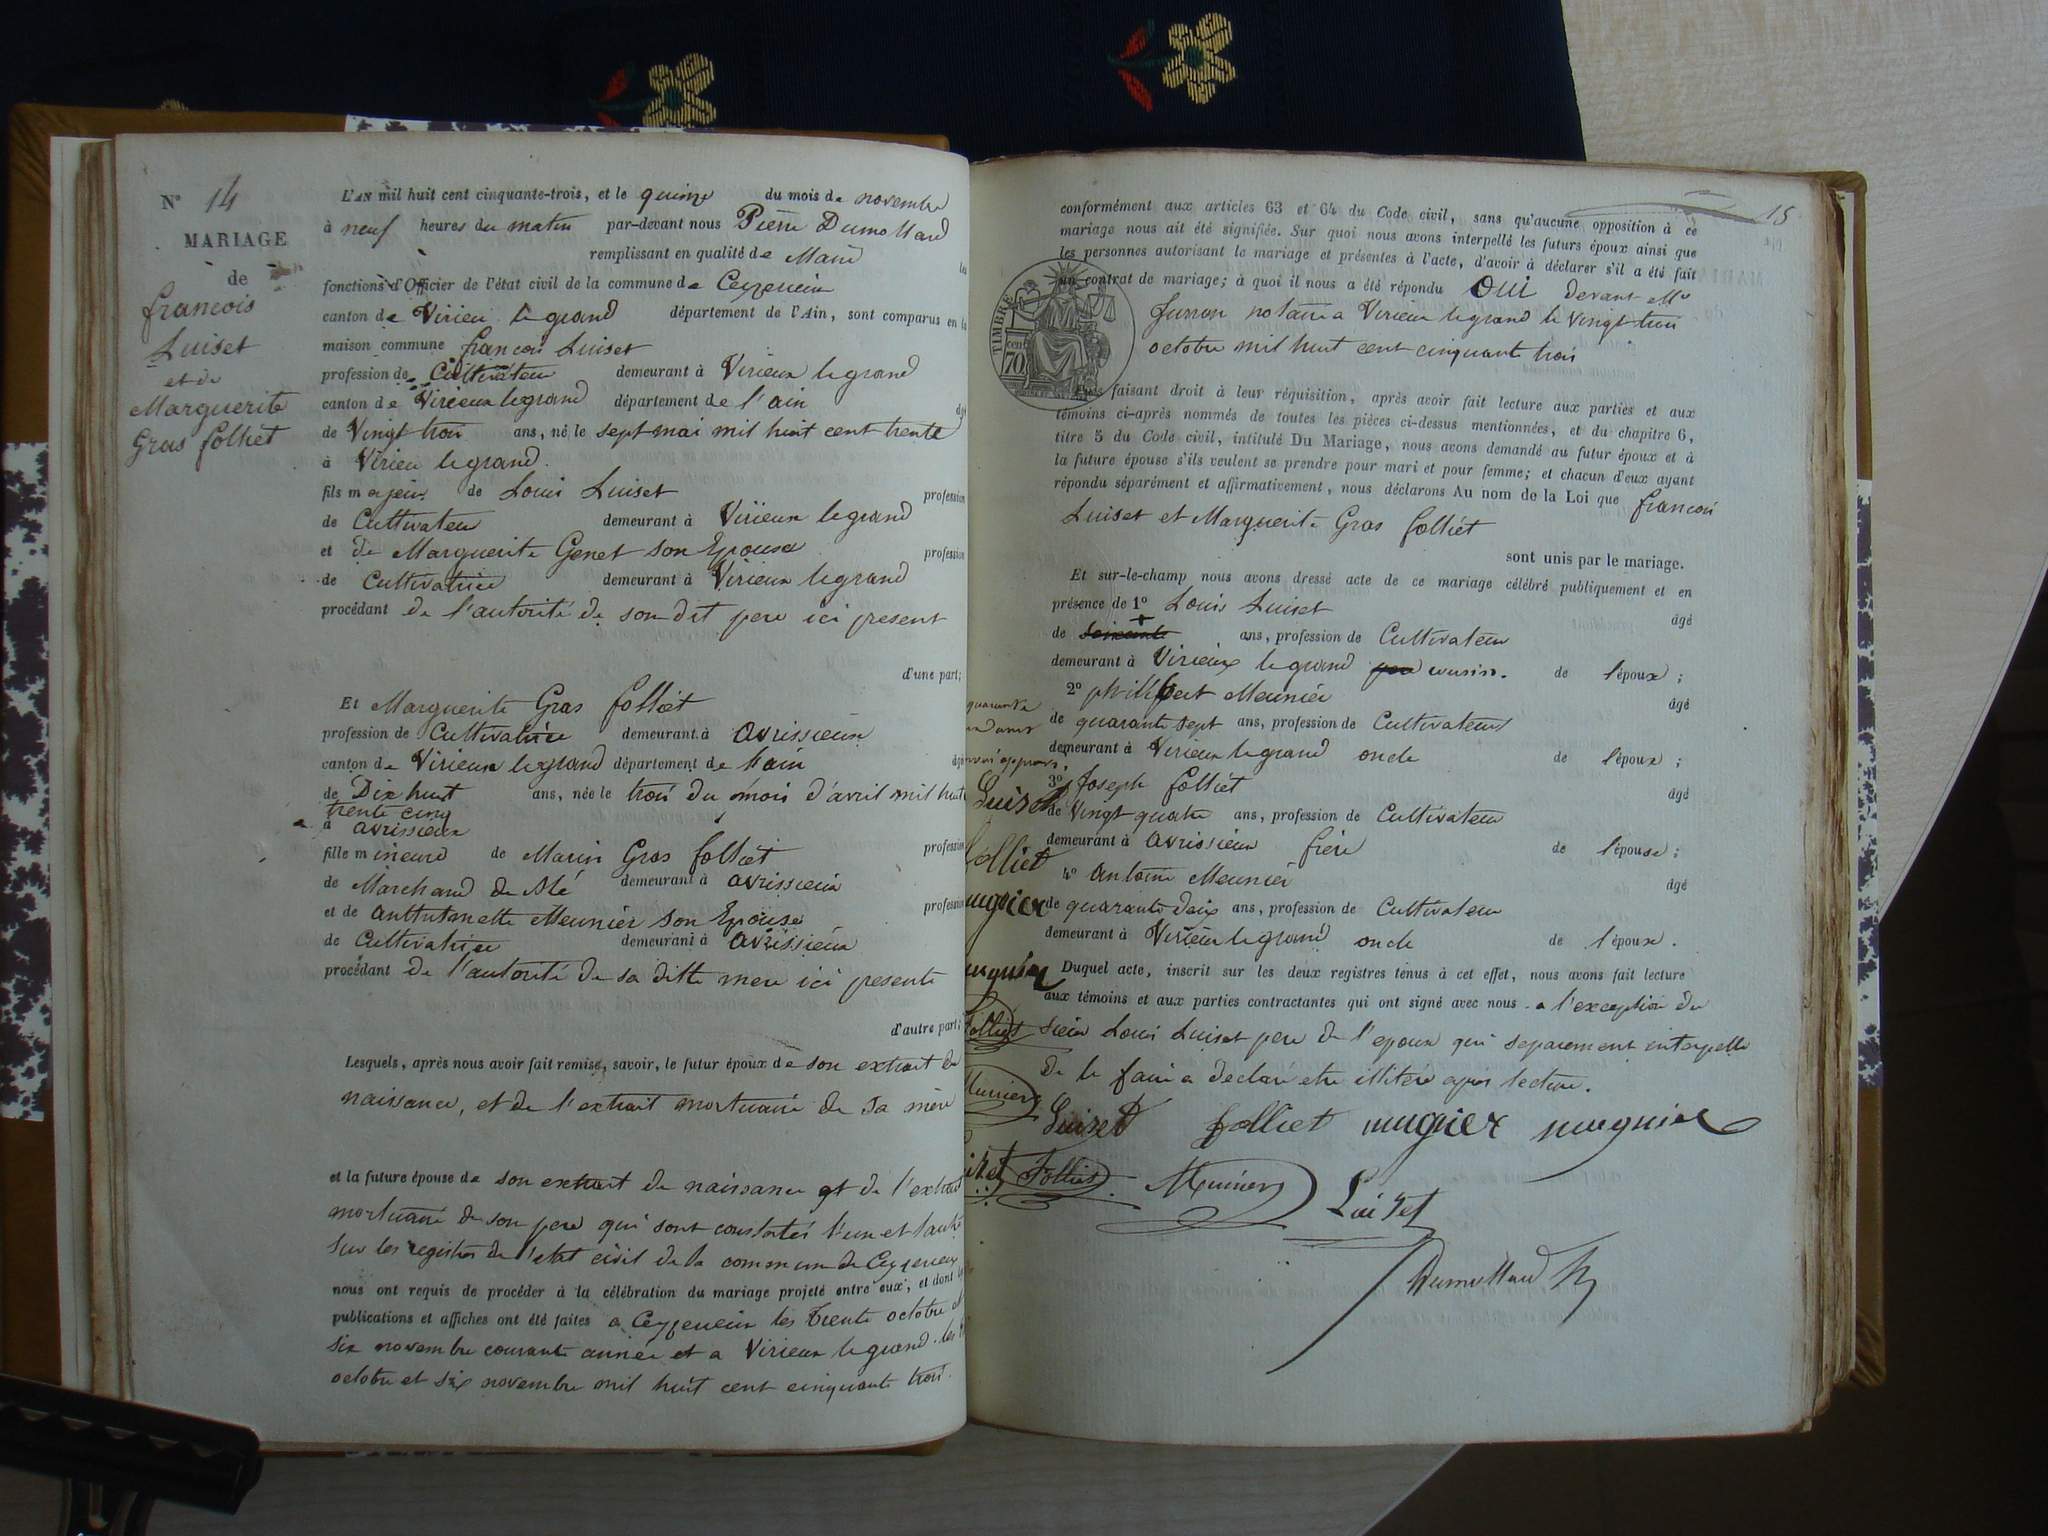 N° 14
MARIAGE
de
francois
Luiset
et de
Marguerite
Gras folliet
L'AN mil huit cent cinquante-trois, et le quinze du mois de novembre
à neuf heures du matin par-devant nous Pierre Dumollard
remplissant en qualité de Maire les
fonctions d'Officier de l'état civil de la commune de Ceyzerieu
canton de Virieu le grand département de l'Ain, sont comparus en la
maison commune françois Luiset
profession de Cultivateur demeurant à Virieux le grand
canton de Virieux legrand département de l'ain âgé
de Vingt trois ans, né le sept mai mil huit cent trente
à Virieu le grand.
fils majeur de Louis Luiset profession
de Cultivateur demeurant à Virieux le grand
et de Marguerite Genet son Epouse profession
de Cultivatrice demeurant à Virieux le grand
procédant de l'autorité de son dit pere ici present
d'une part;
Et Marguerite Gras folliet
profession de Cultivatrice demeurant à avrissieux
canton de Virieux legrand département de l'ain âgée
de Dix huit ans, née le trois du mois d'avril mil huit
trente cinq
à avrissieux
fille mineure de Marin Gras folliet profession
de Marchand de blé demeurant à avrissieux
et de anthutmette Meunier son Epouse profession
de Cultivatrice demeurant à avrissieux
procédant de l'autorité de sa ditte mere ici presente
d'autre part;
Lesquels, après nous avoir fait remise, savoir, le futur époux de son extrait de
naissance, et de l'extrait mortuaire de sa mère
et la future épouse de son extrait de naissance et de l'extrait
mortuaire de son pere qui sont constatés l'un et l'autre
sur les registres de l'etat civil de la commune de Ceyzerieux
nous ont requis de procéder à la célébration du mariage projeté entre eux, et dont les
publications et affiches ont été faites a Ceyzerieu les trente octobre et
six novembre courante année et a Virieux le grand les
octobre et six novembre mil huit cent cinquante trois.
15
conformément aux articles 63 et 64 du Code civil, sans qu'aucune opposition à ce
mariage nous ait été signifiée. Sur quoi nous avons interpellé les futurs époux ainsi que
les personnes autorisant le mariage et présentes à l'acte, d'avoir à déclarer s'il a été fait
un contrat de mariage; à quoi il nous a été répondu OUI devant Me
notaire a Virieux legrand le vingt trois
octobre mil huit cent cinquante trois
TIMBRE
cent
70
Puis faisant droit à leur réquisition, après avoir fait lecture aux parties et aux
témoins ci-après nommés de toutes les pièces ci-dessus mentionnées, et du chapitre 6,
titre 5 du Code civil, intitulé Du Mariage, nous avons demandé au futur époux et à
la future épouse s'ils veulent se prendre pour mari et pour femme; et chacun d'eux ayant
répondu séparément et affirmativement, nous déclarons Au nom de la Loi que francois
Luiset et Marguerite Gras folliet
sont unis par le mariage.
Et sur-le-champ nous avons dressé acte de ce mariage célébré publiquement et en
présence de 1° Louis Luiset âgé
de soixante ans, profession de Cultivateur
demeurant à Virieux le grand cousin. de l'époux;
2° philibert Meunier âgé
de quarante sept ans, profession de Cultivateur
demeurant à Virieux le grand oncle de l'époux;
3° Joseph folliet âgé
de Vingt quatre ans, profession de Cultivateur
demeurant à avrissieux frère de l'épouse;
4° antoine Meunier âgé
de quarante deux ans, profession de Cultivateur
demeurant à Virieux le grand oncle de l'épouse.
Duquel acte, inscrit sur les deux registres tenus à cet effet, nous avons fait lecture
aux témoins et aux parties contractantes qui ont signé avec nous a l'exception du
sieur Louis Luiset pere de l'epoux qui separement interpellé
de le faire a declaré etre illitéré après lecture.
quarante
Luiset
folliet
Luiset folliet mugnier mugnier
Folliet Munier Luiset
Dumollard